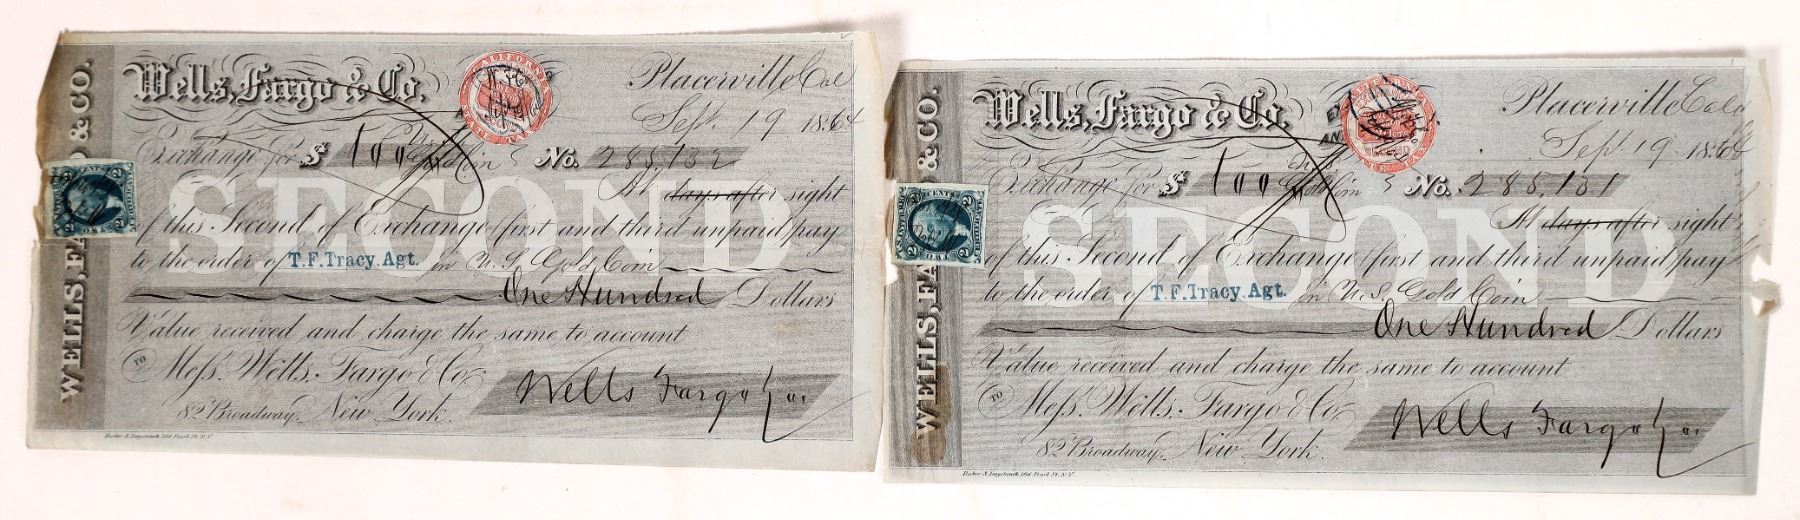 WELLS, FA & CO.
Wells, Fargo & Co.
Placerville Cal
Sep 19 1864
Exchange for $ 100 Gold Coin No. 285,132
SECOND
At days after sight
of this Second of Exchange (first and third unpaid) pay
to the order of T.F. Tracy, Agt. in U.S. Gold Coin
One Hundred Dollars
Value received and charge the same to account
TO Mess. Wells, Fargo & Co.
82 Broadway, New York.
Wells Fargo & Co
WELLS, FA & CO.
Wells, Fargo & Co.
CALIFORNIA
Placerville Cala
Sep. 19 1864
Exchange for $ 100 Gold Coin No. 285,131
SECOND
At days after sight
of this Second of Exchange (first and third unpaid) pay
to the order of T.F. Tracy, Agt. in U.S. Gold Coin
One Hundred Dollars
Value received and charge the same to account
TO Mess. Wells, Fargo & Co.
82 Broadway, New York.
Wells Fargo & Co